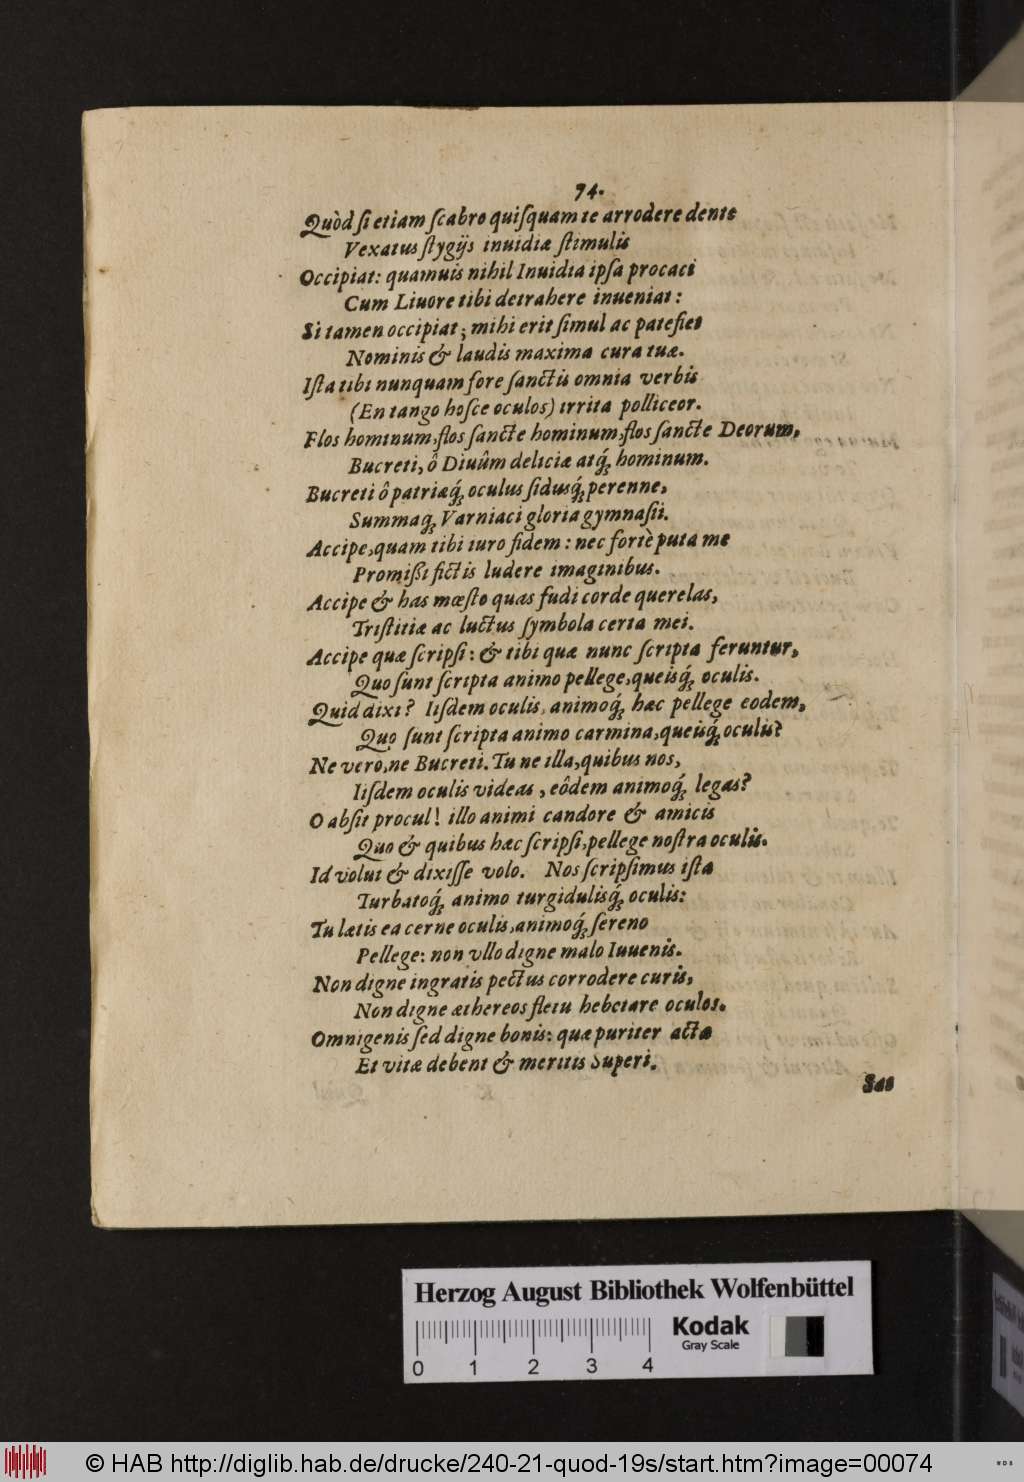 74.
Quòd ſi etiam ſcabro quiſquam te arrodere dente
Vexatus ſtygijs inuidiæ ſtimulis
Occipiat: quamuis nihil Inuidia ipſa procaci
Cum Liuore tibi detrahere inueniat:
Si tamen occipiat; mihi erit ſimul ac patefiet
Nominis & laudis maxima cura tuæ.
Iſta tibi nunquam fore ſanctis omnia verbis
(En tango hoſce oculos) irrita polliceor.
Flos hominum, flos ſancte hominum, flos ſancte Deorum,
Bucreti, ô Diuûm deliciæ atq́; hominum.
Bucreti ô patriæq́; oculus ſidusq́; perenne,
Summaq; Varniaci gloria gymnaſii.
Accipe, quam tibi iuro fidem: nec fortè puta me
Promiſſi fictis ludere imaginibus.
Accipe & has mœſto quas fudi corde querelas,
Triſtitiæ ac luctus ſymbola certa mei.
Accipe quæ ſcripſi: & tibi quæ nunc ſcripta feruntur,
Quo ſunt ſcripta animo pellege, queisq́; oculis.
Quid dixi? Iiſdem oculis, animoq́; hæc pellege eodem,
Quo ſunt ſcripta animo carmina, queisq́; oculis?
Ne vero, ne Bucreti. Tu ne illa, quibus nos,
Iiſdem oculis videas, eôdem animoq́; legas?
O abſit procul! illo animi candore & amicis
Quo & quibus hæc ſcripſi, pellege noſtra oculis.
Id volui & dixiſſe volo. Nos ſcripſimus iſta
Turbatoq́; animo turgidulisq́; oculis:
Tu lætis ea cerne oculis, animoq́; ſereno
Pellege: non vllo digne malo Iuuenis.
Non digne ingratis pectus corrodere curis,
Non digne æthereos fletu hebetare oculos.
Omnigenis ſed digne bonis: quæ puriter acta
Et vitæ debent & meritis Superi.
Herzog August Bibliothek Wolfenbüttel
Kodak
Gray Scale
0 1 2 3 4
© HAB http://diglib.hab.de/drucke/240-21-quod-19s/start.htm?image=00074